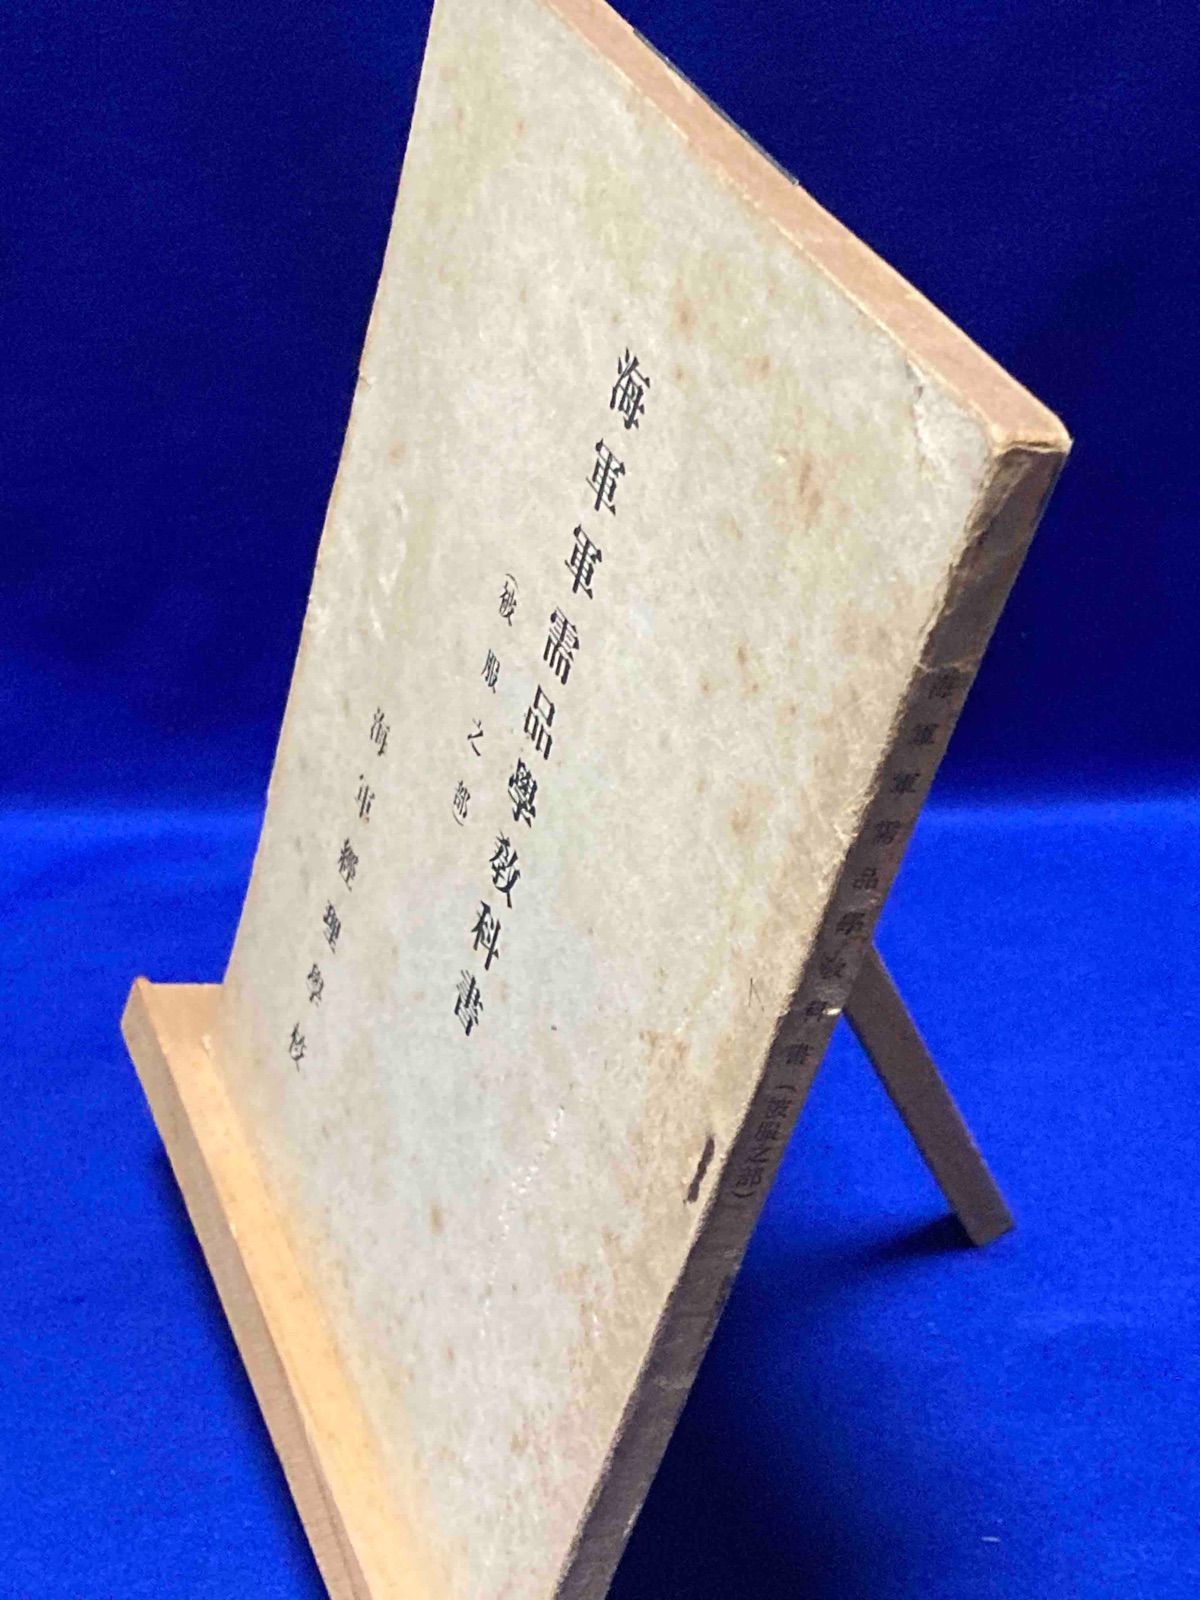 海軍軍需品學敎科書
(被服之部)
海軍經理學校
海軍軍需品學敎科書(被服之部)